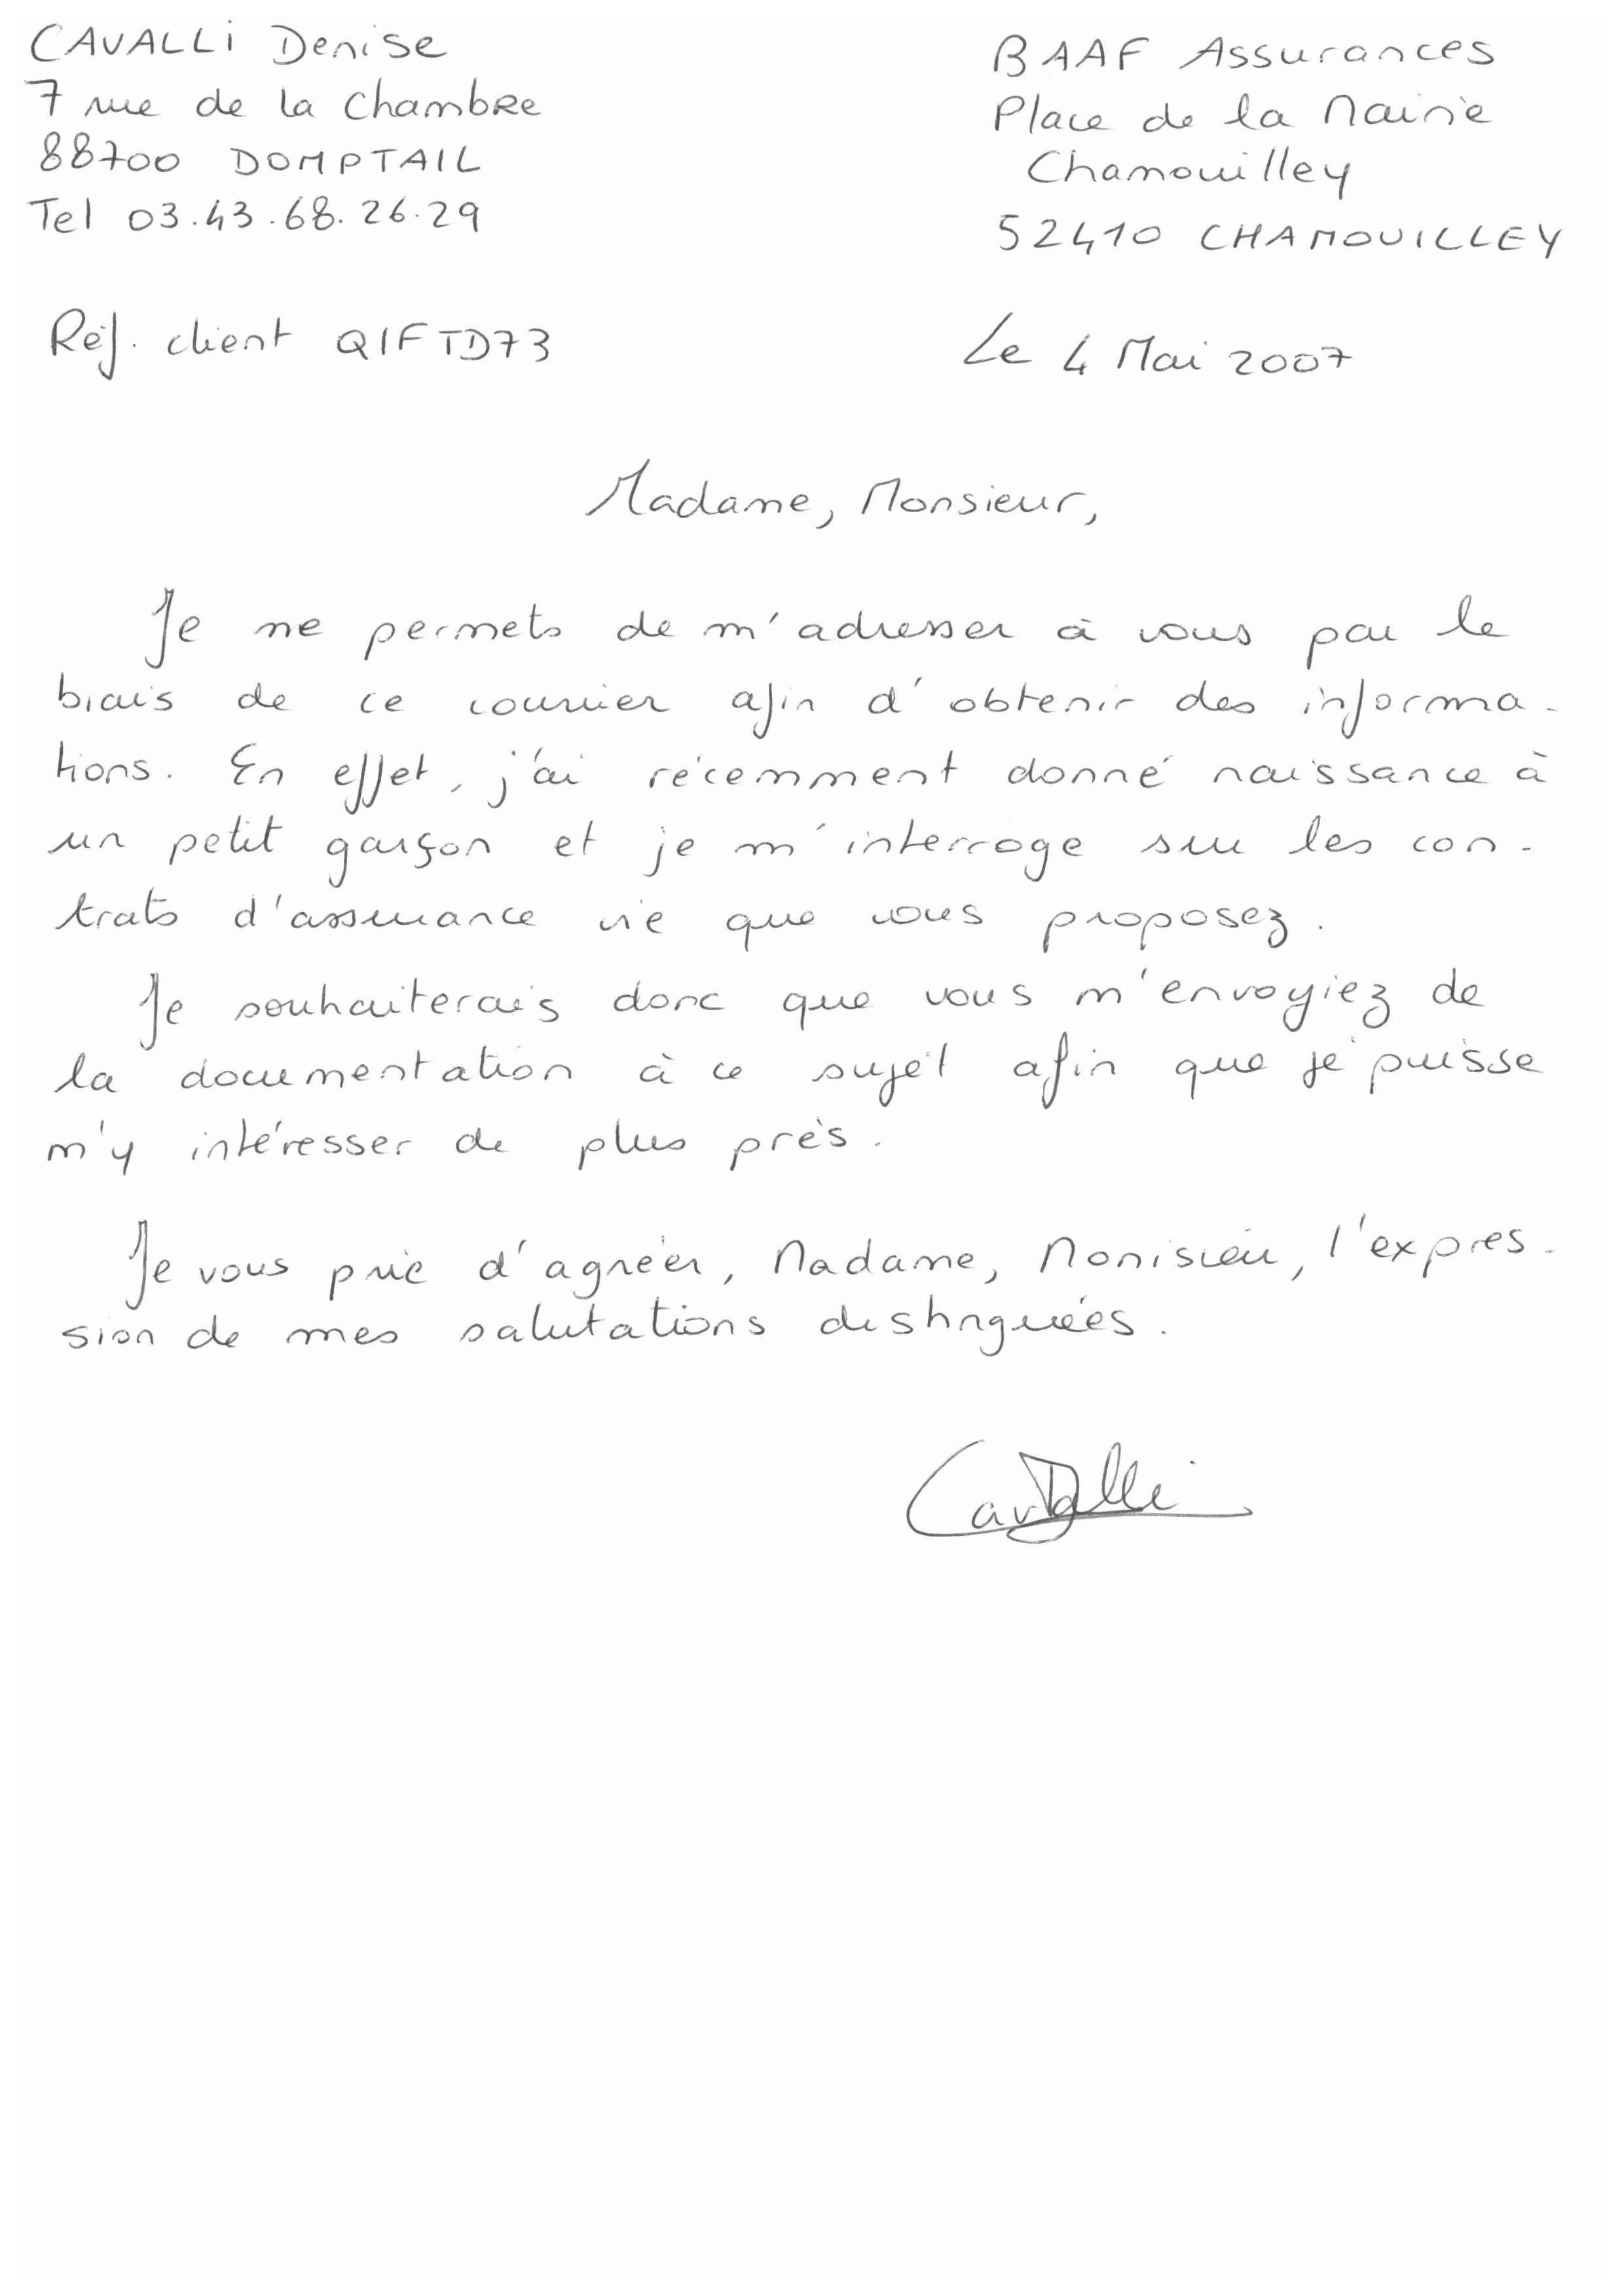 CAVALLI Denise
7 rue de la Chambre
88700 DOMPTAIL
Tel 03.43.68.26.29
BAAF Assurances
Place de la Mairie
Chamouilley
52410 CHAMOUILLEY
Réf. client QIFTD73
Le 4 Mai 2007
Madame, Monsieur,
Je me permets de m'adresser à vous par le
biais de ce courrier afin d'obtenir des informa-
tions. En effet, j'ai récemment donné naissance à
un petit garçon et je m'interroge sur les con-
trats d'assurance vie que vous proposez.
Je souhaiterais donc que vous m'envoyiez de
la documentation à ce sujet afin que je puisse
m'y intéresser de plus près.
Je vous prie d'agréer, Madame, Monisieur, l'expres-
sion de mes salutations distinguées.
Cavalli